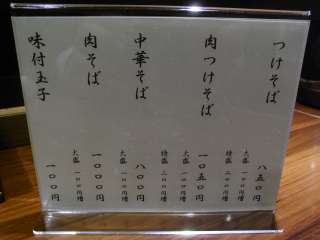 つけそば 八五〇円
大盛 一〇〇円増
特盛 二〇〇円増
肉つけそば 一〇五〇円
大盛 一〇〇円増
特盛 二〇〇円増
中華そば 八〇〇円
大盛 一〇〇円増
肉そば 一〇〇〇円
大盛 一〇〇円増
味付玉子 一〇〇円